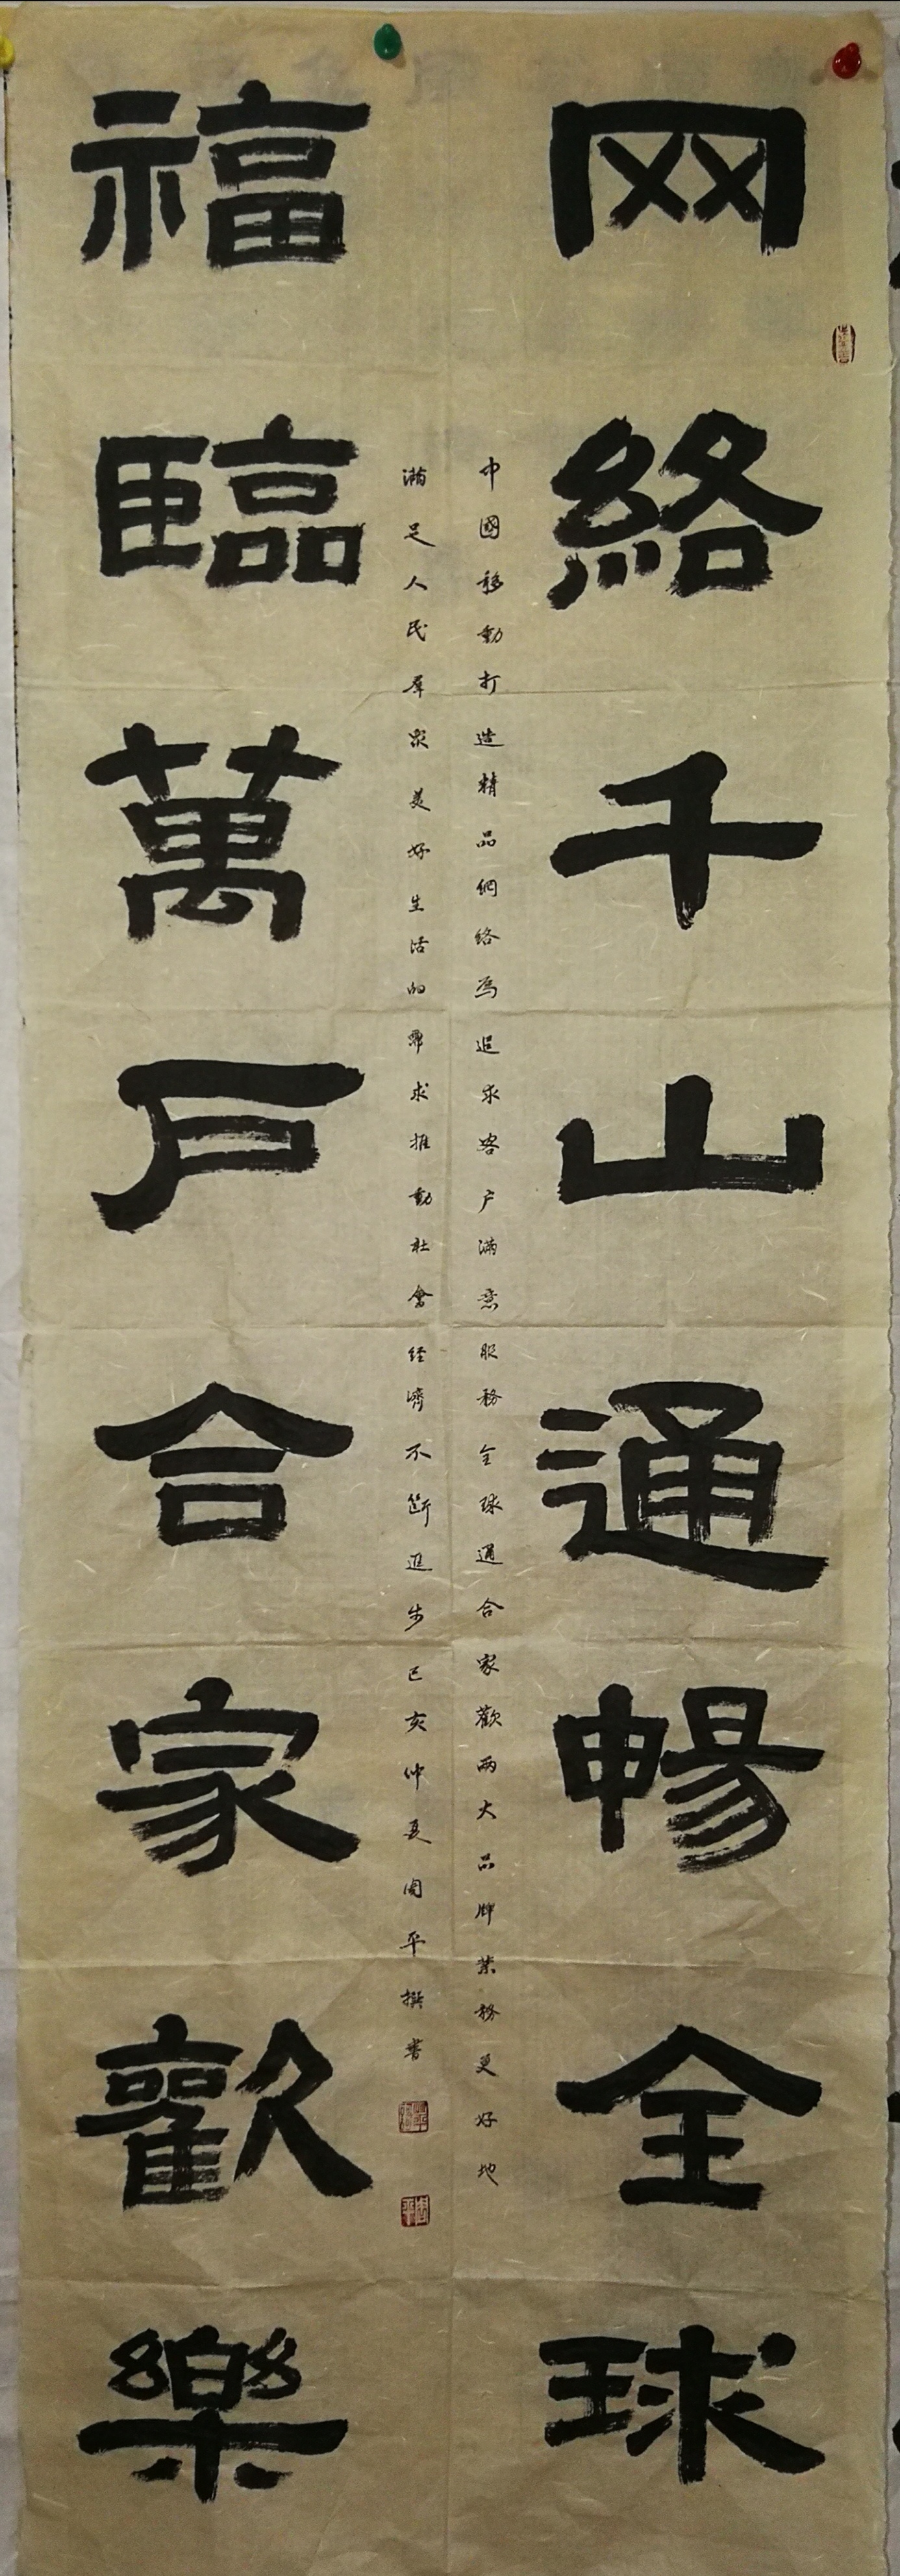 网絡千山通暢全球
中國移動打造精品網絡為追求客户滿意服務全球通合家歡兩大品牌業務更好地
滿足人民羣衆美好生活的需求推動社會經濟不斷進步己亥仲夏周平撰書
福臨萬戶合家歡樂
周平